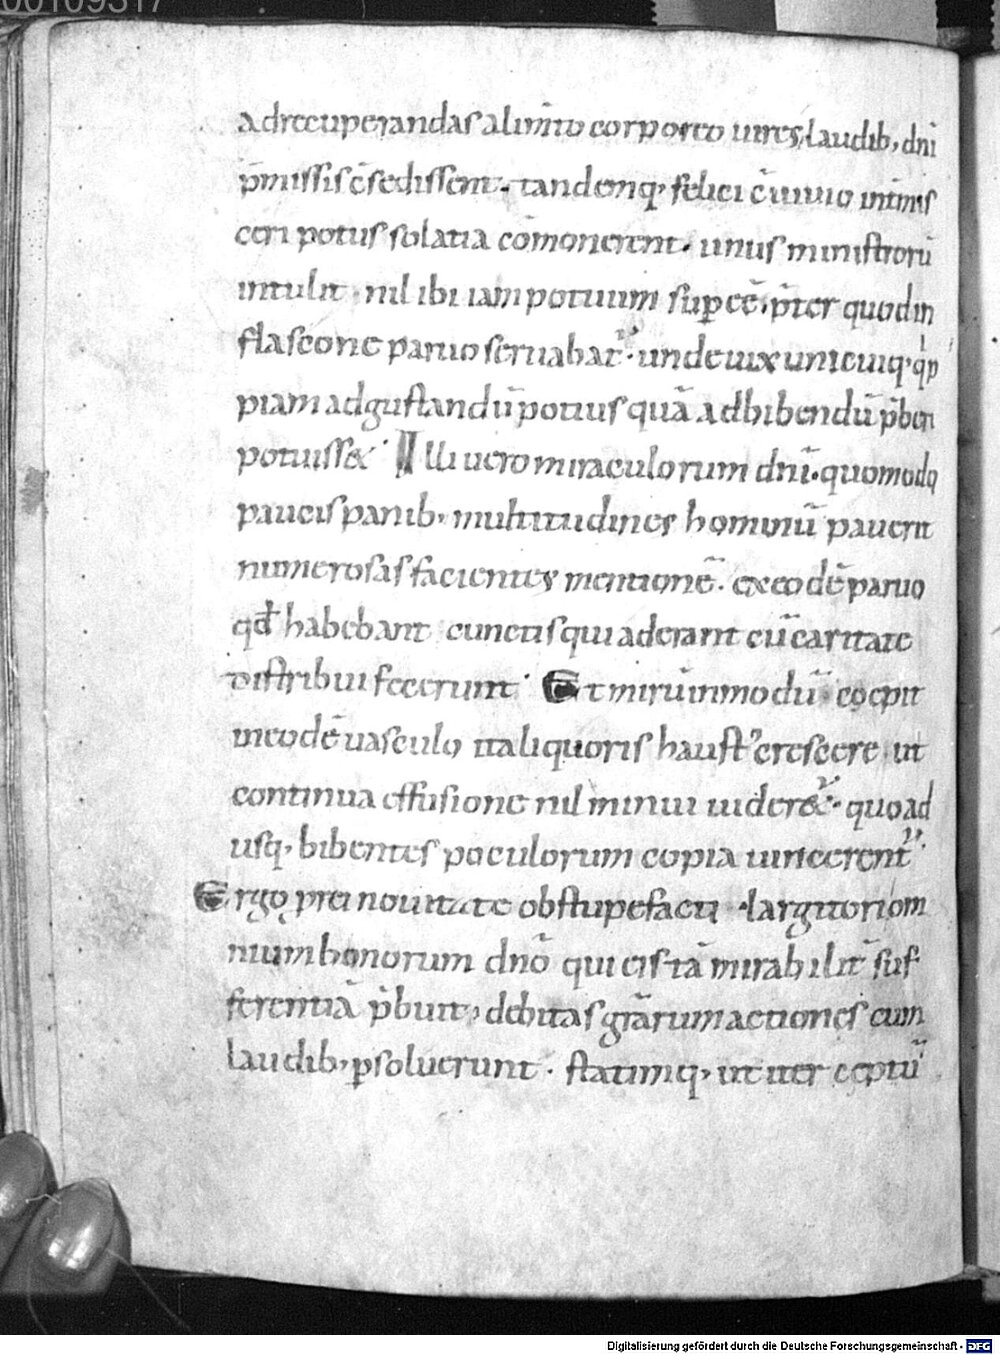 00109317
adrecuperandas alim̄to corporeo uires, laudib; dn̄i
p̄missis c̄sedissent. tandemq; felici c̄uiuio int̄mis
ceri potus solatia cōmonerent. unus ministrorū
intulit. nil ibi iam potuum sup eē. p̄ter quod in
flascone paruo seruabat̄. unde uix unicuiq; qͥp
piam adgustandū potius quā adbibendū p̄beri
potuiss&. Illi uero miraculorum dn̄i. quomodo
paucis panib; multitudines hominū pauerit
numerosas facientes mentionē. ex eodē paruo
qđ habebant cunctis qui aderant cū caritate
distribui fecerunt. Et mirū inmodū coepit
in eodē uasculo ita liquoris haust; crescere. ut
continua effusione nil minui uider&̄. quo ad
usq; bibentes poculorum copia uincerent̄.
Ergo p̱rei nouitate obstupefacti. largitori om
nium bonorum dnō qui eis tā mirabilit̄ suf
ferentiā p̄buit, debitas gr̄arum actiones cum
laudib; p̱soluerunt. statimq; ut iter cęptū
Digitalisierung gefördert durch die Deutsche Forschungsgemeinschaft - DFG